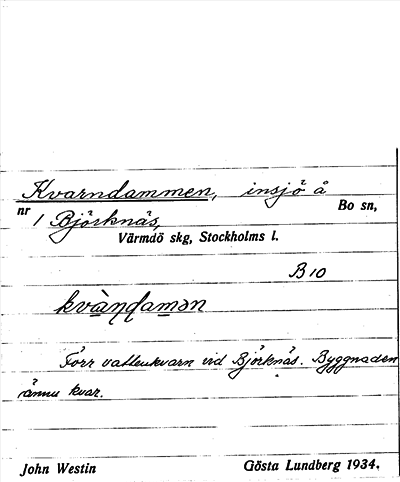 Kvarndammen, insjö å
nr 1 Björknäs, Bo sn,
Värmdö skg, Stockholms l.
B 10
kvàn̥ɖamən
Förr vattenkvarn vid Björknäs. Byggnaden
ännu kvar.
John Westin Gösta Lundberg 1934.